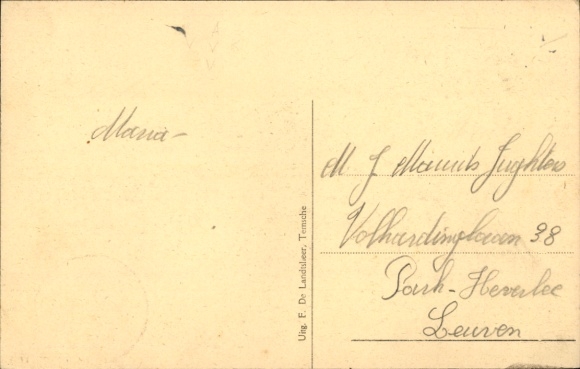 Maria -
Uitg. F. De Landtsheer, Temsche
M J Maurits Jughters
Volhardingslaan 38
Park - Heverlee
Leuven